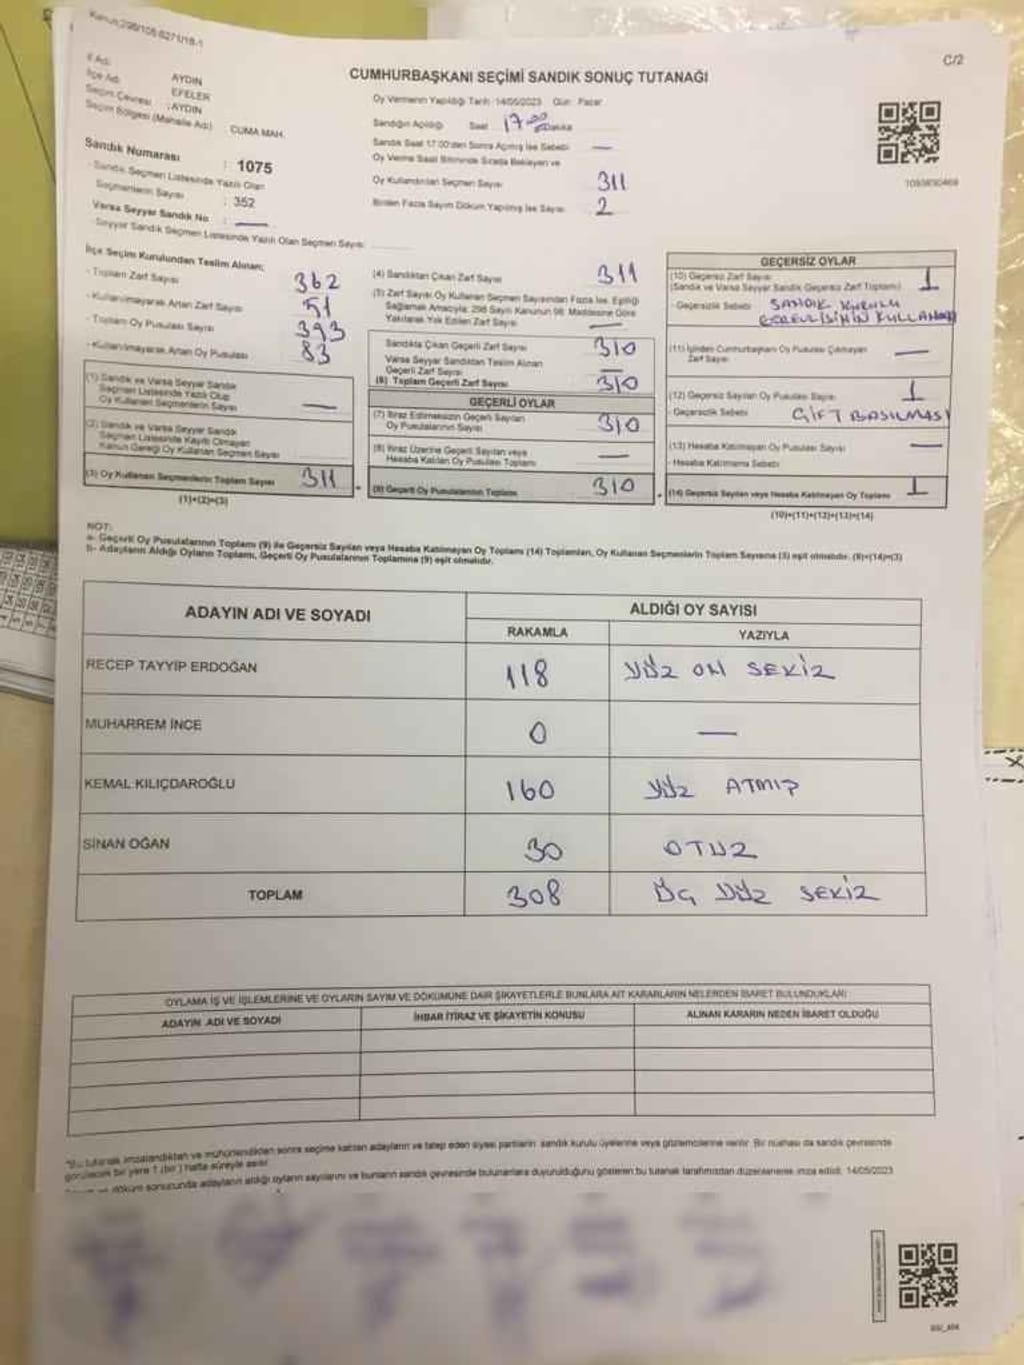 Kanun:298/105-6271/18-1
C/2
CUMHURBAŞKANI SEÇİMİ SANDIK SONUÇ TUTANAĞI
İl Adı
AYDIN
İlçe Adı
EFELER
Seçim Çevresi : AYDIN
Seçim Bölgesi (Mahalle Adı) CUMA MAH.
Sandık Numarası : 1075
- Sandık Seçmen Listesinde Yazılı Olan
Seçmenlerin Sayısı : 352
Varsa Seyyar Sandık No : —
- Seyyar Sandık Seçmen Listesinde Yazılı Olan Seçmen Sayısı
Oy Vermenin Yapıldığı Tarih 14/05/2023 Gün Pazar
Sandığın Açıldığı Saat 17 00 Dakika
Sandık Saat 17:00'den Sonra Açılmış İse Sebebi —
Oy Verme Saati Bitiminde Sırada Bekleyen ve
Oy Kullandırılan Seçmen Sayısı 311
Birden Fazla Sayım Döküm Yapılmış İse Sayısı 2
İlçe Seçim Kurulundan Teslim Alınan;
- Toplam Zarf Sayısı 362
- Kullanılmayarak Artan Zarf Sayısı 51
- Toplam Oy Pusulası Sayısı 393
- Kullanılmayarak Artan Oy Pusulası 83
(1) Sandık ve Varsa Seyyar Sandık
Seçmen Listesinde Yazılı Olup
Oy Kullanan Seçmenlerin Sayısı —
(2) Sandık ve Varsa Seyyar Sandık
Seçmen Listesinde Kayıtlı Olmayan
Kanun Gereği Oy Kullanan Seçmen Sayısı
(3) Oy Kullanan Seçmenlerin Toplam Sayısı 311
(1)+(2)=(3)
(4) Sandıktan Çıkan Zarf Sayısı 311
(5) Zarf Sayısı Oy Kullanan Seçmen Sayısından Fazla İse, Eşitliği
Sağlamak Amacıyla; 298 Sayılı Kanunun 98. Maddesine Göre
Yakılarak Yok Edilen Zarf Sayısı —
Sandıkta Çıkan Geçerli Zarf Sayısı 310
Varsa Seyyar Sandıktan Teslim Alınan
Geçerli Zarf Sayısı —
(6) Toplam Geçerli Zarf Sayısı 310
GEÇERLİ OYLAR
(7) İtiraz Edilmeksizin Geçerli Sayılan
Oy Pusulalarının Sayısı 310
(8) İtiraz Üzerine Geçerli Sayılan veya
Hesaba Katılan Oy Pusulası Toplamı —
(9) Geçerli Oy Pusulalarının Toplamı 310
GEÇERSİZ OYLAR
(10) Geçersiz Zarf Sayısı
(Sandık ve Varsa Seyyar Sandık Geçersiz Zarf Toplamı) 1
- Geçersizlik Sebebi SANDIK KURULU
GÖREVLİSİNİN KULLANMASI
(11) İçinden Cumhurbaşkanı Oy Pusulası Çıkmayan
Zarf Sayısı —
(12) Geçersiz Sayılan Oy Pusulası Sayısı 1
- Geçersizlik Sebebi ÇİFT BASILMASI
(13) Hesaba Katılmayan Oy Pusulası Sayısı —
- Hesaba Katılmama Sebebi
(14) Geçersiz Sayılan veya Hesaba Katılmayan Oy Toplamı 1
(10)+(11)+(12)+(13)=(14)
NOT:
a- Geçerli Oy Pusulalarının Toplamı (9) ile Geçersiz Sayılan veya Hesaba Katılmayan Oy Toplamı (14) Toplamları, Oy Kullanan Seçmenlerin Toplam Sayısına (3) eşit olmalıdır. (9)+(14)=(3)
b- Adayların Aldığı Oyların Toplamı, Geçerli Oy Pusulalarının Toplamına (9) eşit olmalıdır.
ADAYIN ADI VE SOYADI
ALDIĞI OY SAYISI
RAKAMLA YAZIYLA
RECEP TAYYİP ERDOĞAN 118 YÜZ ON SEKİZ
MUHARREM İNCE 0 —
KEMAL KILIÇDAROĞLU 160 YÜZ ATMIŞ
SİNAN OĞAN 30 OTUZ
TOPLAM 308 ÜÇ YÜZ SEKİZ
OYLAMA İŞ VE İŞLEMLERİNE VE OYLARIN SAYIM VE DÖKÜMÜNE DAİR ŞİKAYETLERLE BUNLARA AİT KARARLARIN NELERDEN İBARET BULUNDUKLARI
ADAYIN ADI VE SOYADI İHBAR İTİRAZ VE ŞİKAYETİN KONUSU ALINAN KARARIN NEDEN İBARET OLDUĞU
*Bu tutanak imzalandıktan ve mühürlendikten sonra seçime katılan adayların ve talep eden siyasi partilerin sandık kurulu üyelerine veya gözlemcilerine verilir. Bir nüshası da sandık çevresinde
görülecek bir yere 1 (bir) hafta süreyle asılır.
döküm sonucunda adayların aldığı oyların sayılarını ve bunların sandık çevresinde bulunanlara duyurulduğunu gösteren bu tutanak tarafımızdan düzenlenerek imza edildi. 14/05/2023